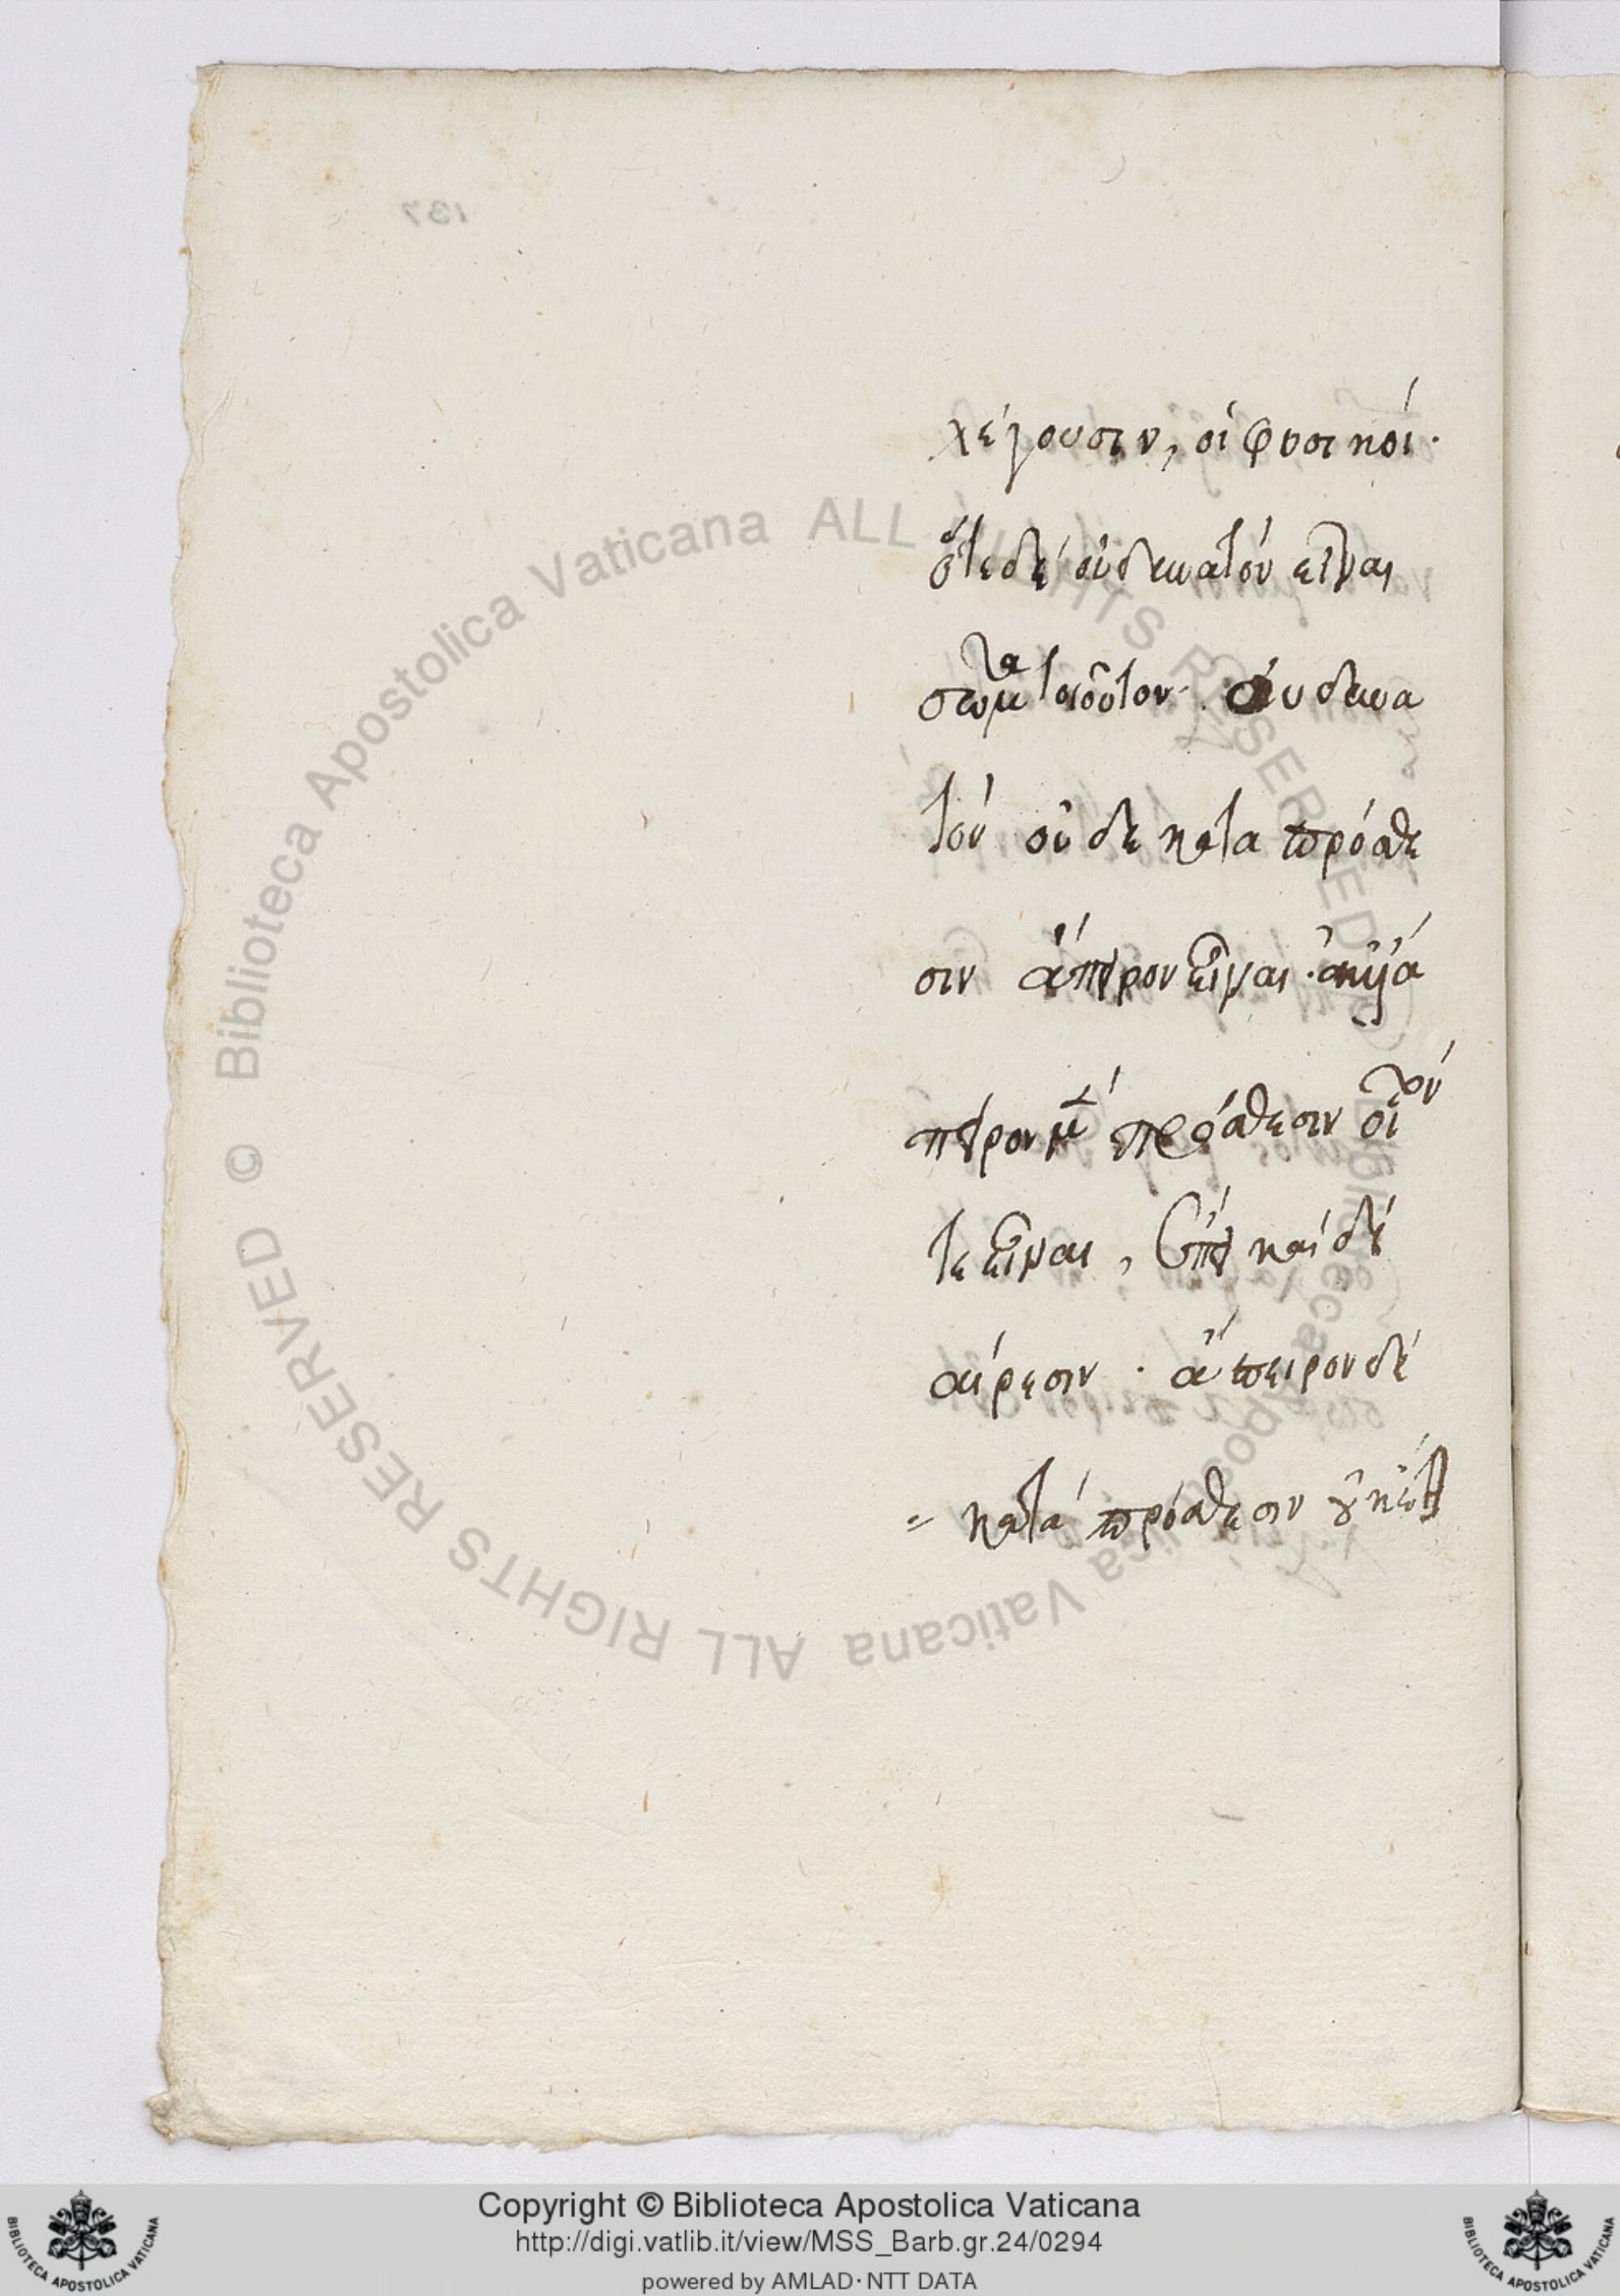 λέγουσιν, οἱ φυσικοί.
ὅτε δὲ οὐ δυνατόν εἶναι
σῶμα τοιοῦτον. οὐ δυνα
τόν οὐδὲ κατὰ πρόσθε
σιν ἄπειρον εἶναι.
πειρον μὲν πρόσθεσιν οἷόν
τε εἶναι, καὶ δι
αίρεσιν. ἄπειρον δὲ
κατὰ πρόσθεσιν
137
© Biblioteca Apostolica Vaticana ALL RIGHTS RESERVED
© Biblioteca Apostolica Vaticana ALL RIGHTS RESERVED
Copyright © Biblioteca Apostolica Vaticana
http://digi.vatlib.it/view/MSS_Barb.gr.24/0294
powered by AMLAD·NTT DATA
BIBLIOTECA APOSTOLICA VATICANA
BIBLIOTECA APOSTOLICA VATICANA